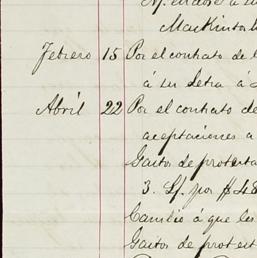 N. endosé á su
MacKintosh
Febrero 15 Por el contrato de l
á su Letra á
Abril 22 Por el contrato de
aceptaciones a
Gastos de protesta
3. Lf. por $48
Cambio á que les
Gastos de protest